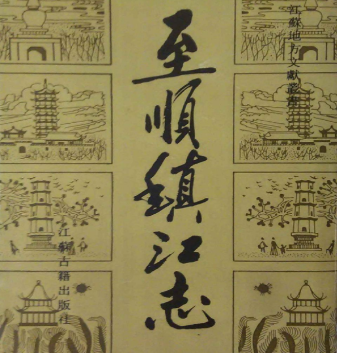 江蘇地方文獻叢書
至順鎮江志
江蘇古籍出版社